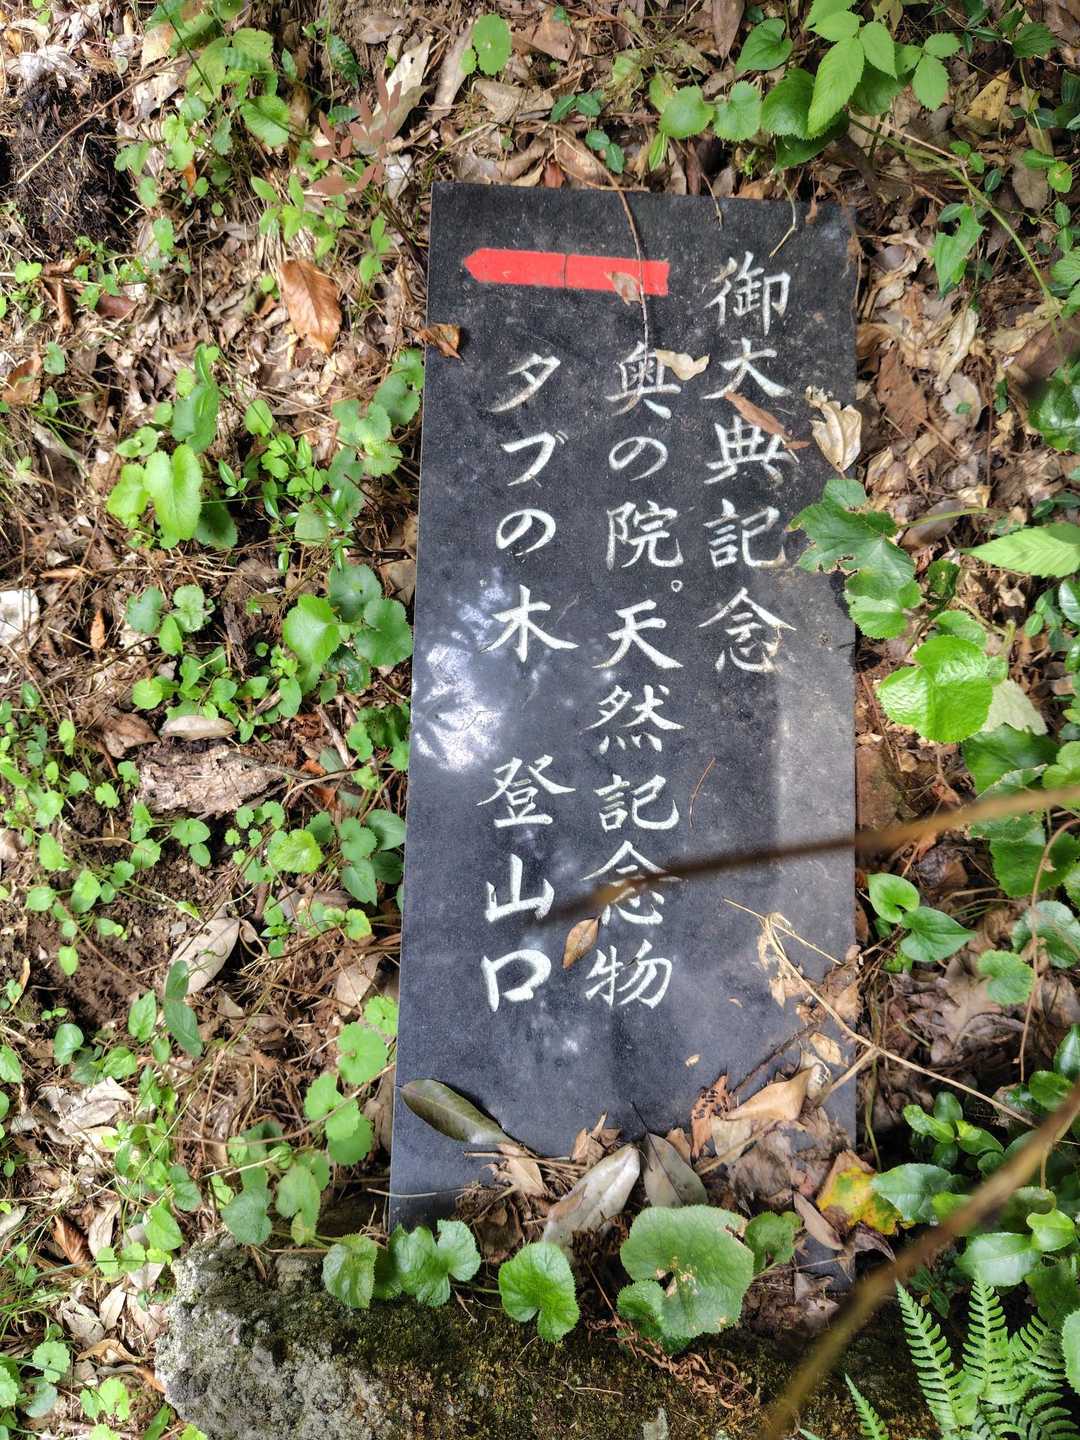 御大典記念
奥の院。天然記念物
タブの木 登山口